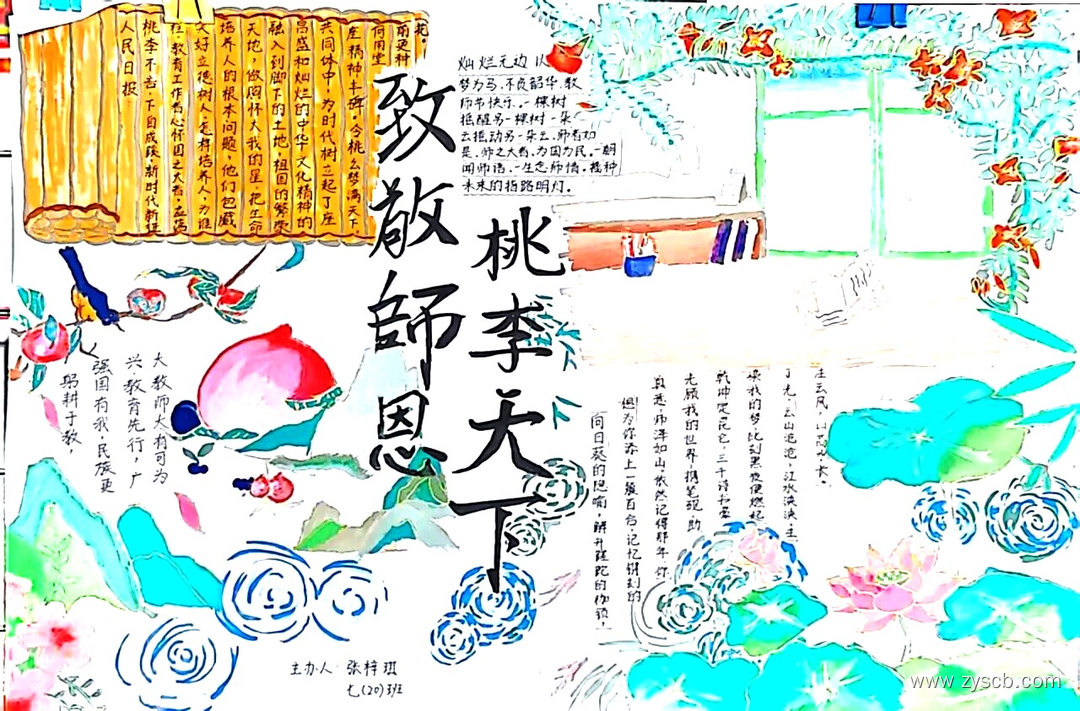 致敬師恩
桃李天下
花,
雨更种
何用堂
座精神丰碑。令桃么梦满天下
共同体中,为时代树立起了座
昌盛和灿烂的中华文化精神的
融入到脚下的土地,祖国的繁荣
天地,做胸怀大我的星,把生命
培养人的根本问题,他们包藏
文好立德树人,怎样培养人,为谁
教育工作者心怀国之大者,
桃李不言,下自成蹊,新时代新征
人民日报
灿烂无边以
梦为马,不负韶华,教
师节快乐。一棵树
摇醒另一棵树一朵
云摇动另一朵云。师者如
是,师之大者,为国为民,一朝
闻师语,一生念师情,播种
未来的指路明灯。
大教师大有可为
兴教育先行,广
强国有我,民族更
躬耕于教,
了光,云山迢迢,江水泱泱,
的梦,比刻黑夜便燃起
乾坤定昆仑,三千诗书
照我的世界,携笔砚,助
真意,师泽如山,依然记得那年,你
为你添上一层百合,记忆镌刻的
向日葵的隐喻,解开蹉跎的枷锁,
主办人:张梓琪
七(20)班
www.zyscb.com